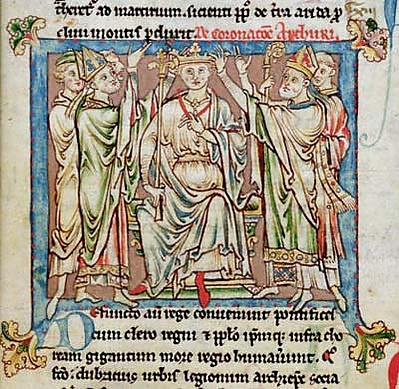 ad martirium. sicienti pp̄lo de t̄ra arida p̄
cliui montis p̄duxit. De coronac̄oe Arthuri.
Defuncto aū rege conuenerunt pontifices
cum clero regni & pp̄lo ip̄mq; infra cho
ream gigantum more regio humauerunt. Et
dubricius urbis legionum archiep̄c socia